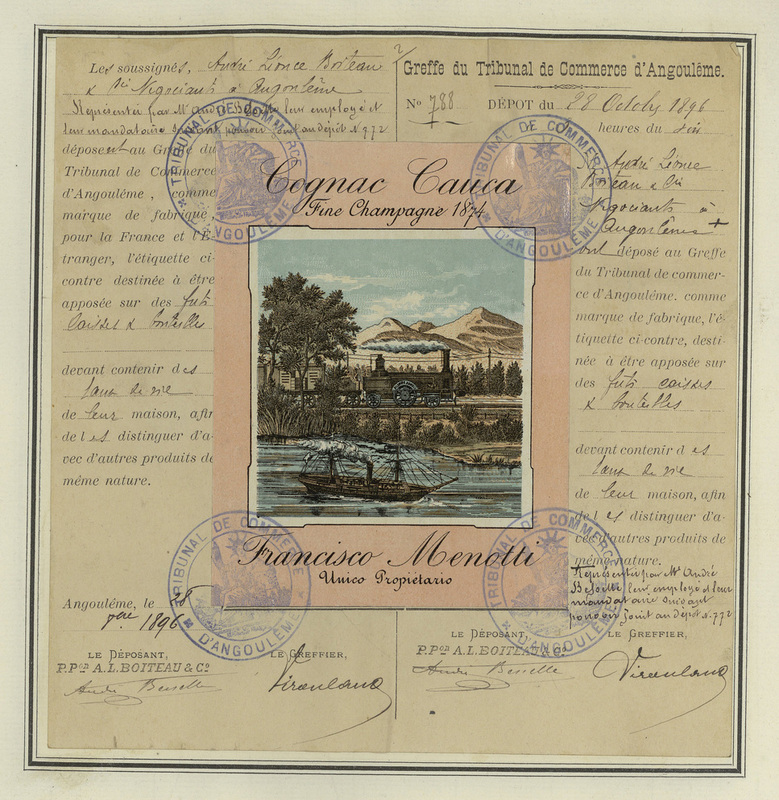 Les soussignés, André Léonce Boiteau
& Cie Négociants à Angoulême
Représentés par Mr André Besseille leur employé et
leur mandataire suivant pouvoir joint au dépôt N. 772
déposent au Greffe du
Tribunal de Commerce
d'Angoulême, comme
marque de fabrique,
pour la France et l'É-
tranger, l'étiquette ci-
contre destinée à être
apposée sur des futs
caisses & bouteilles
devant contenir des
eaux de vie
de leur maison, afin
de les distinguer d'a-
vec d'autres produits de
même nature.
Angoulême, le 28
8bre 1896
LE DÉPOSANT,
LE GREFFIER,
P.Pon A.L. BOITEAU & Co
Greffe du Tribunal de Commerce d'Angoulême.
No 788 DÉPOT du 28 Octobre 1896
heures du soir
André Léonce
Boiteau & Cie
Négociants à
Angoulême
ont déposé au Greffe
du Tribunal de commer-
ce d'Angoulême. comme
marque de fabrique, l'é-
tiquette ci-contre, desti-
née à être apposée sur
des futs caisses
& bouteilles
devant contenir des
eaux de vie
de leur maison, afin
de les distinguer d'a-
vec d'autres produits de
même nature.
Représentés par Mr André
leur employé et leur
mandataire suivant
pouvoir joint au dépôt N. 772
LE DÉPOSANT,
LE GREFFIER,
P.Pon A.L. BOITEAU & Co
Cognac Cauca
Fine Champagne 1874
Francisco Menotti
Unico Propietario
TRIBUNAL DE COMMERCE
D'ANGOULÊME
TRIBUNAL DE COMMERCE
D'ANGOULÊME
TRIBUNAL DE COMMERCE
D'ANGOULÊME
TRIBUNAL DE COMMERCE
D'ANGOULÊME